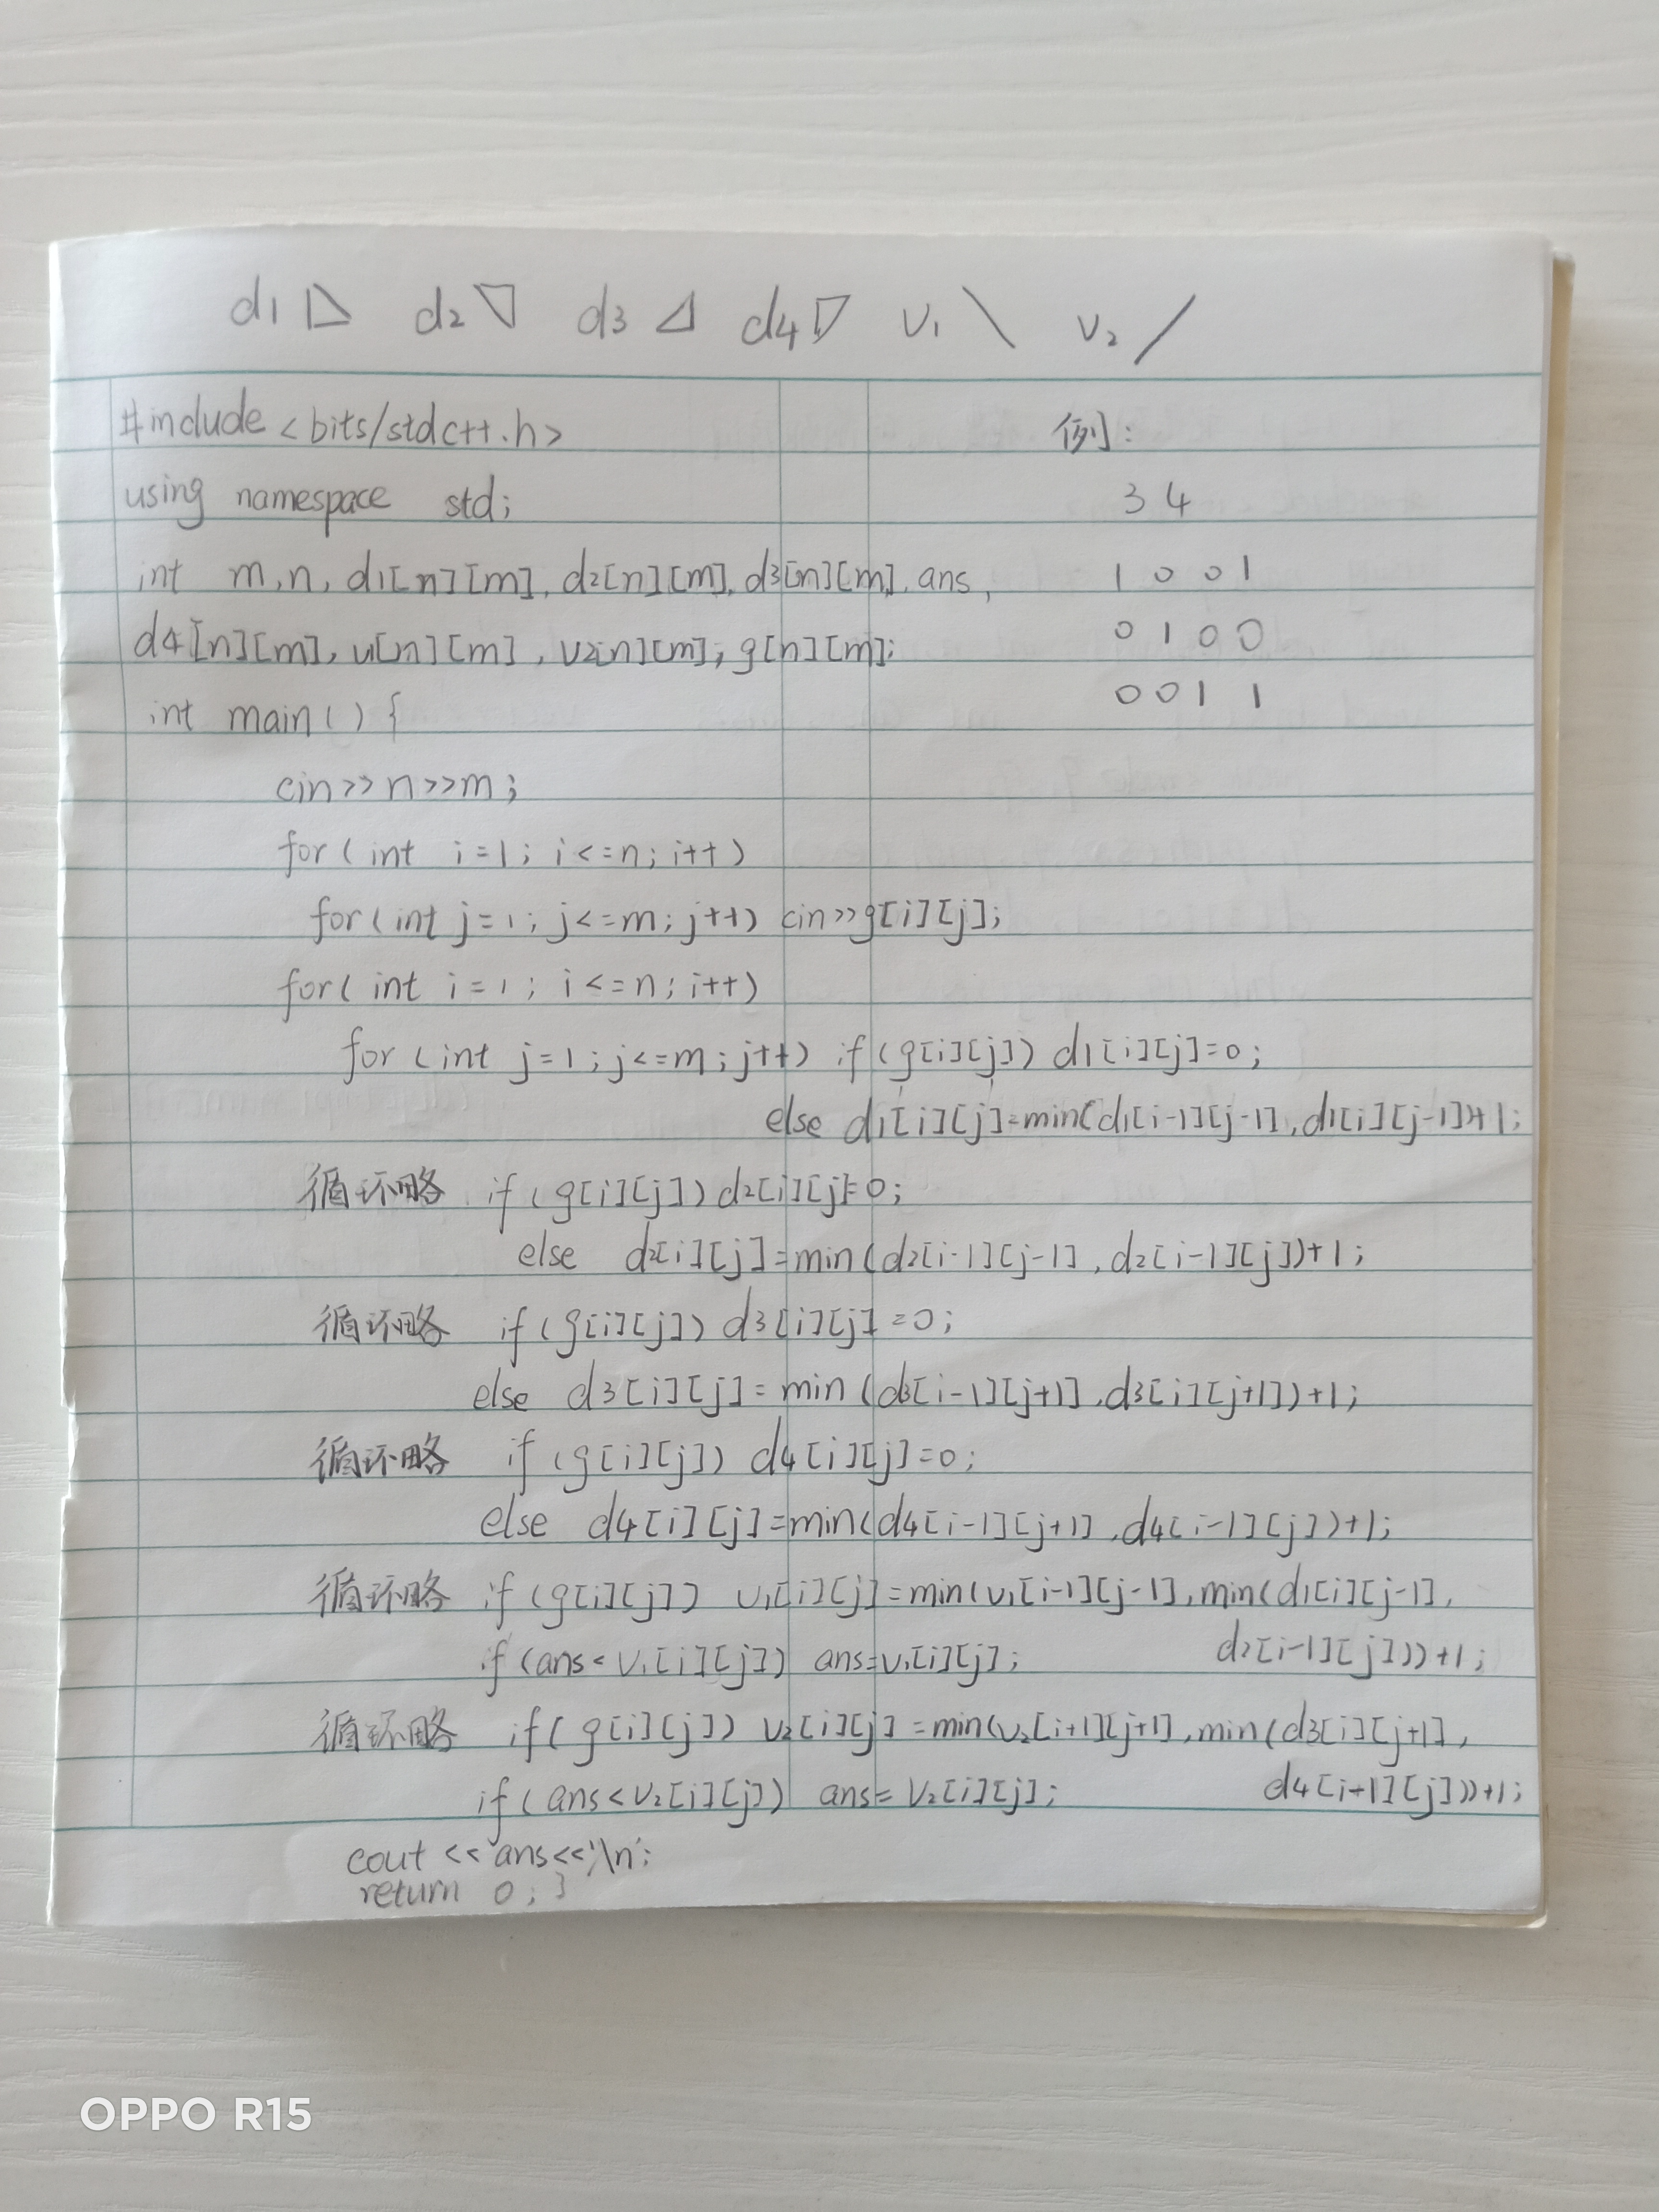 d1 d2 d3 d4 v1 \ v2 /
#include <bits/stdc++.h>
例:
using namespace std;
3 4
int m,n, d1[n][m], d2[n][m], d3[n][m], ans,
1 0 0 1
d4[n][m], v1[n][m], v2[n][m]; g[n][m];
0 1 0 0
int main() {
0 0 1 1
cin>>n>>m;
for(int i=1; i<=n; i++)
for(int j=1; j<=m; j++) cin>>g[i][j];
for(int i=1; i<=n; i++)
for(int j=1; j<=m; j++) if(g[i][j]) d1[i][j]=0;
else d1[i][j]=min(d1[i-1][j-1], d1[i][j-1])+1;
循环略 if(g[i][j]) d2[i][j]=0;
else d2[i][j]=min(d2[i-1][j-1], d2[i-1][j])+1;
循环略 if(g[i][j]) d3[i][j]=0;
else d3[i][j]=min(d3[i-1][j+1], d3[i][j+1])+1;
循环略 if(g[i][j]) d4[i][j]=0;
else d4[i][j]=min(d4[i-1][j+1], d4[i-1][j])+1;
循环略 if(g[i][j]) v1[i][j]=min(v1[i-1][j-1], min(d1[i][j-1],
d2[i-1][j]))+1;
if(ans<v1[i][j]) ans=v1[i][j];
循环略 if(g[i][j]) v2[i][j]=min(v2[i+1][j+1], min(d3[i][j+1],
d4[i+1][j]))+1;
if(ans<v2[i][j]) ans=v2[i][j];
cout<<ans<<'\n';
return 0; }
OPPO R15